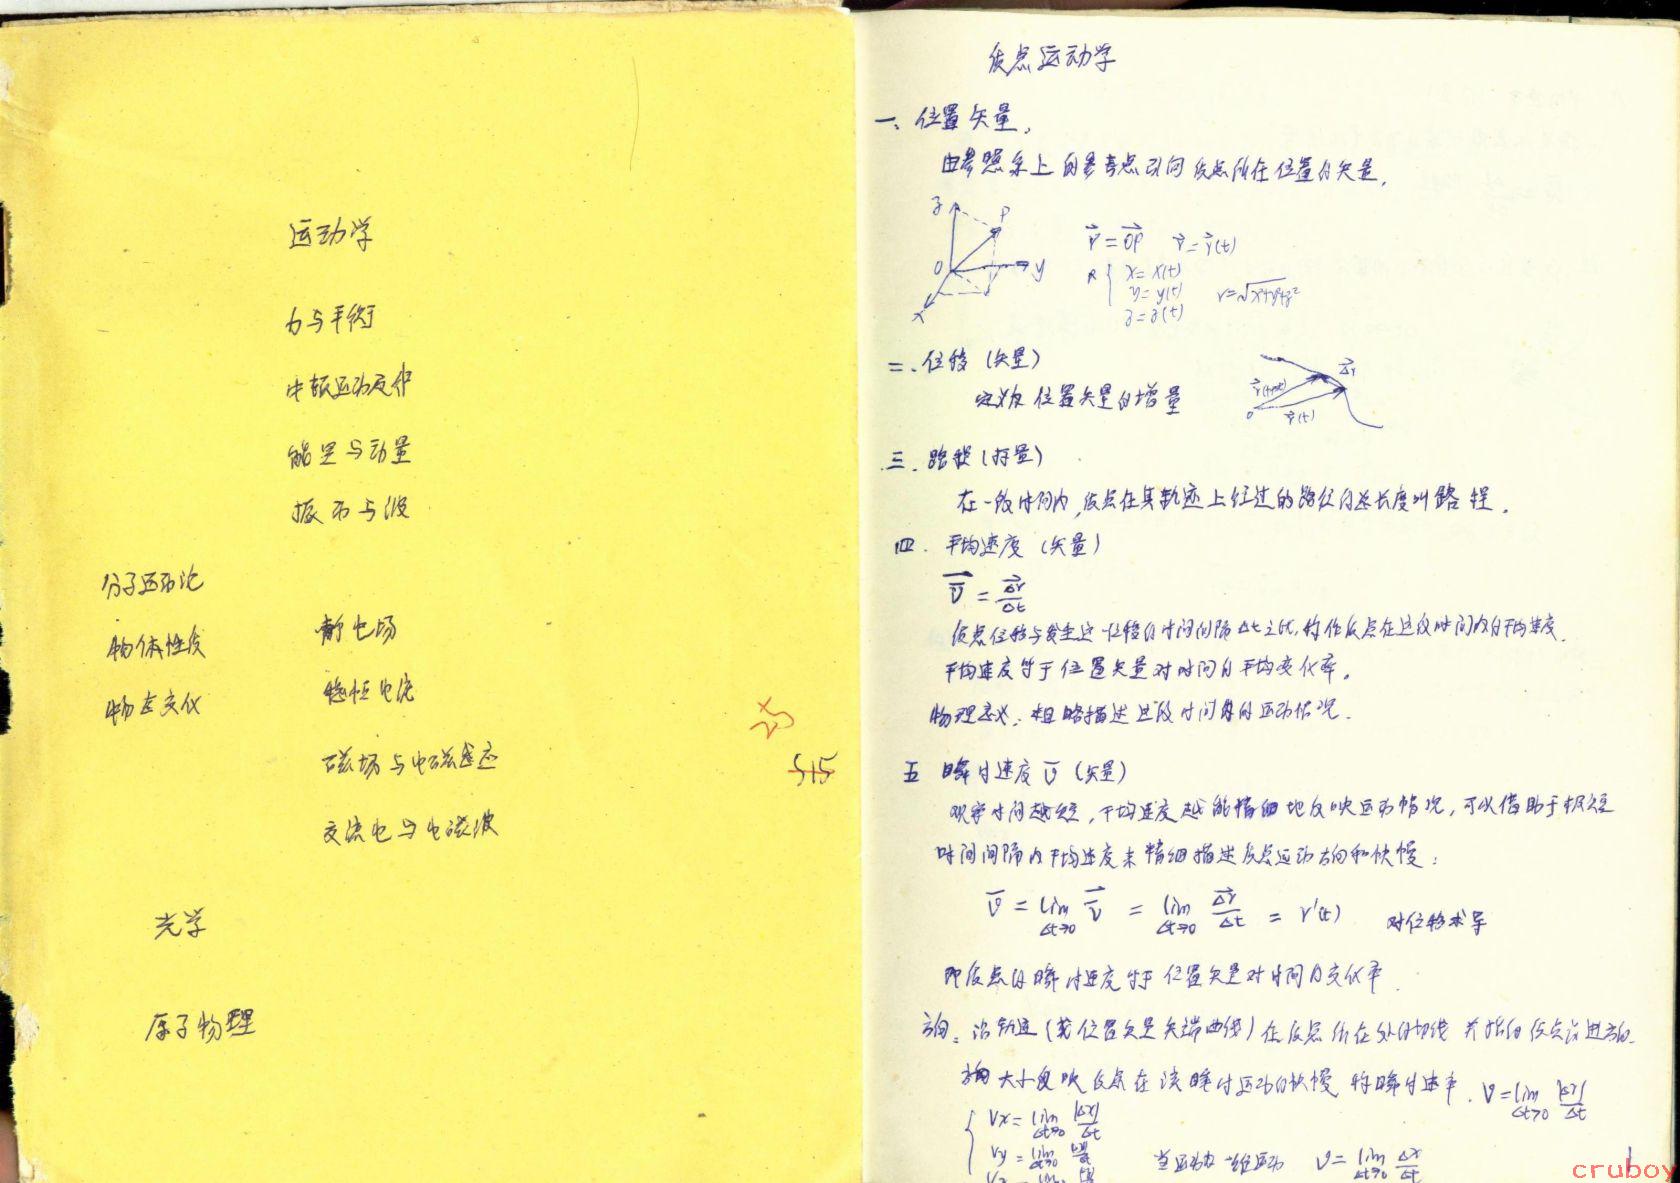 运动学
力与平衡
牛顿运动定律
能量与动量
振动与波
分子运动论
静电场
物体性质
稳恒电流
物态变化
磁场与电磁感应
交流电与电磁波
光学
原子物理
质点运动学
一、位置矢量.
由参照系上的参考点引向质点所在位置的矢量.
z P O y x
r⃗ = OP⃗ r⃗ = r⃗(t)
x = x(t)
y = y(t) r = √x²+y²+z²
z = z(t)
二.位移 (矢量)
定义为位置矢量的增量
r⃗(t+Δt) Δr⃗ O r⃗(t)
三.路程 (标量)
在一段时间内,质点在其轨迹上经过的路径的总长度叫路程.
四.平均速度 (矢量)
v̅⃗ = Δr⃗/Δt
质点位移与发生这一位移的时间间隔Δt之比,称作质点在这段时间内的平均速度.
平均速度等于位置矢量对时间的平均变化率.
物理意义:粗略描述这段时间内的运动情况.
五 瞬时速度 v⃗ (矢量)
观察时间越短,平均速度越能精细地反映运动情况,可以借助于极短
时间间隔内平均速度来精细描述质点运动方向和快慢:
v⃗ = lim Δt→0 v̅⃗ = lim Δt→0 Δr⃗/Δt = r'(t) 对位移求导
即质点的瞬时速度等于位置矢量对时间的变化率.
方向:沿轨迹(或位置矢量矢端曲线)在质点所在处的切线并指向质点前进方向.
大小反映质点在该瞬时运动的快慢 称瞬时速率. v = lim Δt→0 |Δr|/Δt
Vx = lim Δt→0 |Δx|/Δt
Vy = lim 当运动为一维运动 v = lim Δt→0 Δx/Δt
1
cruboy